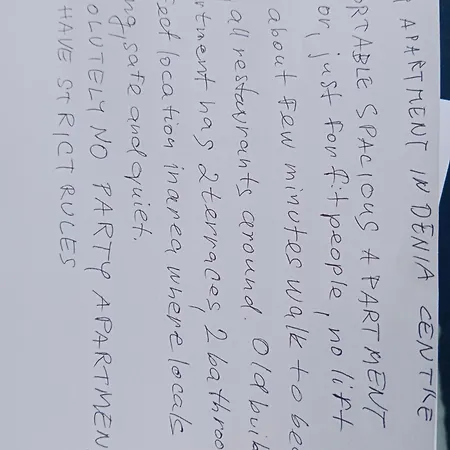 APARTMENT IN DENIA CENTRE
RTABLE SPACIOUS APARTMENT
or, just for fit people, no lift
about few minutes walk to bea
all restaurants around. Old buil
rtment has 2 terraces, 2 bathroo
ect location in area where locals
ng, safe and quiet.
OLUTELY NO PARTY APARTMEN
HAVE STRICT RULES